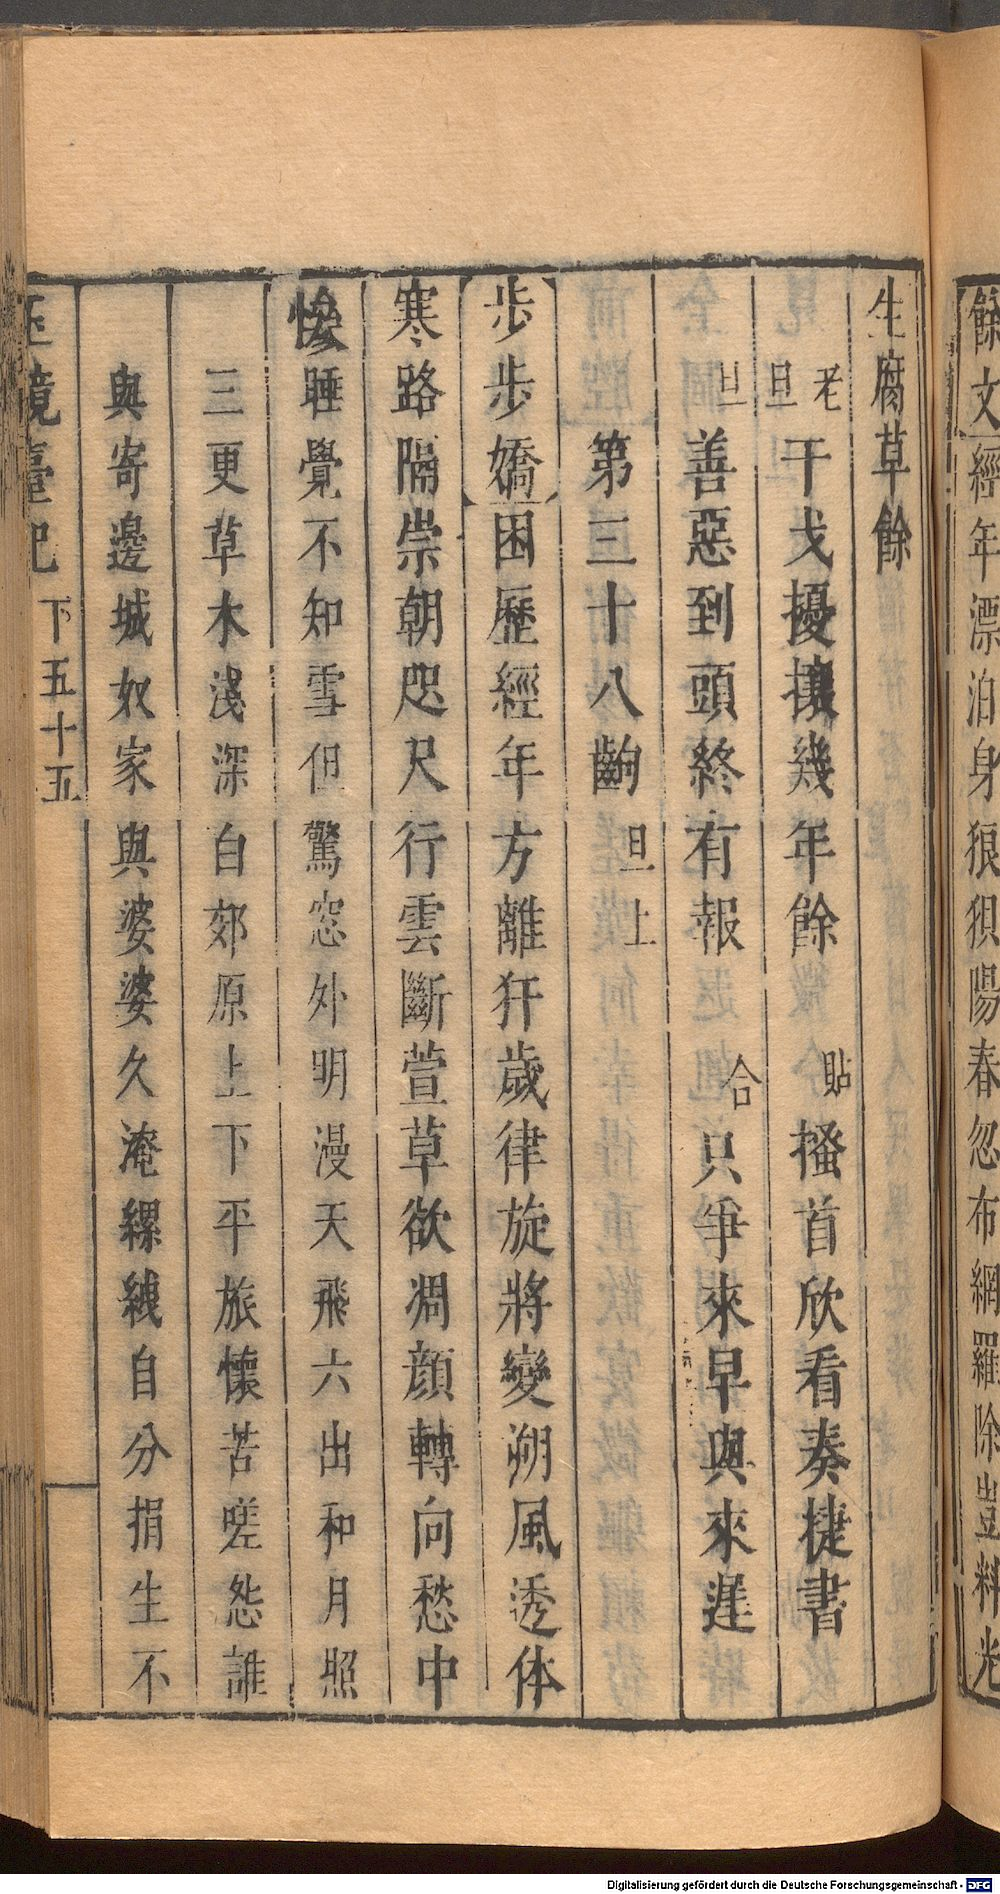 餘文經年漂泊身狼狽陽春忽布網羅除豈料光
生腐草餘
老旦干戈擾攘幾年餘 貼搔首欣看奏捷書
旦善惡到頭終有報 合只爭來早與來遲
第三十八齣 旦上
步步嬌困歷經年方離犴歲律旋將變朔風透体
寒路隔崇朝咫尺行雲斷萱草欲凋顔轉向愁中
慘睡覺不知雪但驚窓外明漫天飛六出和月照
三更草木淺深白郊原上下平旅懷苦嗟怨誰
與寄邊城奴家與婆婆久淹縲絏自分捐生不
玉鏡臺記 下 五十五
Digitalisierung gefördert durch die Deutsche Forschungsgemeinschaft - DFG